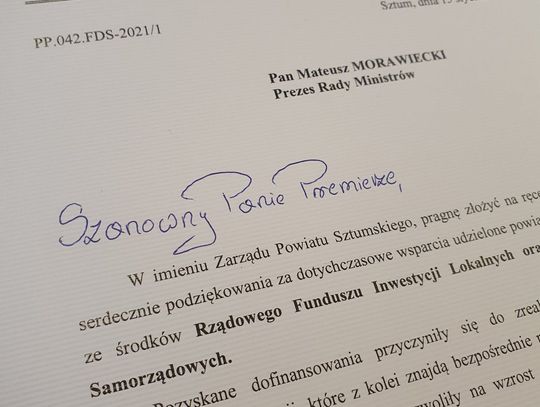 Sztum, dnia 15
PP.042.FDS-2021/1
Pan Mateusz MORAWIECKI
Prezes Rady Ministrów
Szanowny Panie Premierze,
W imieniu Zarządu Powiatu Sztumskiego, pragnę złożyć na ręce
serdecznie podziękowania za dotychczasowe wsparcia udzielone powia
ze środków Rządowego Funduszu Inwestycji Lokalnych ora
Samorządowych.
Pozyskane dofinansowania przyczyniły się do zreal
które z kolei znajdą bezpośrednie
na wzrost